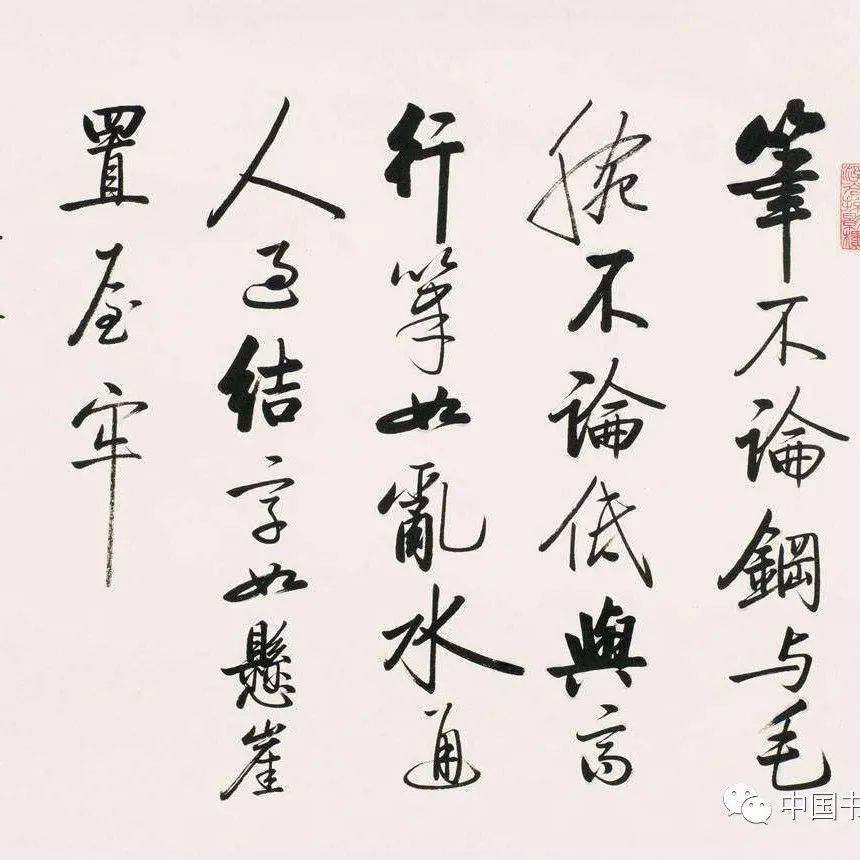 筆不論鋼与毛
腕不論低與高
行筆如亂水通
人過結字如懸崖
置屋牢
中国书